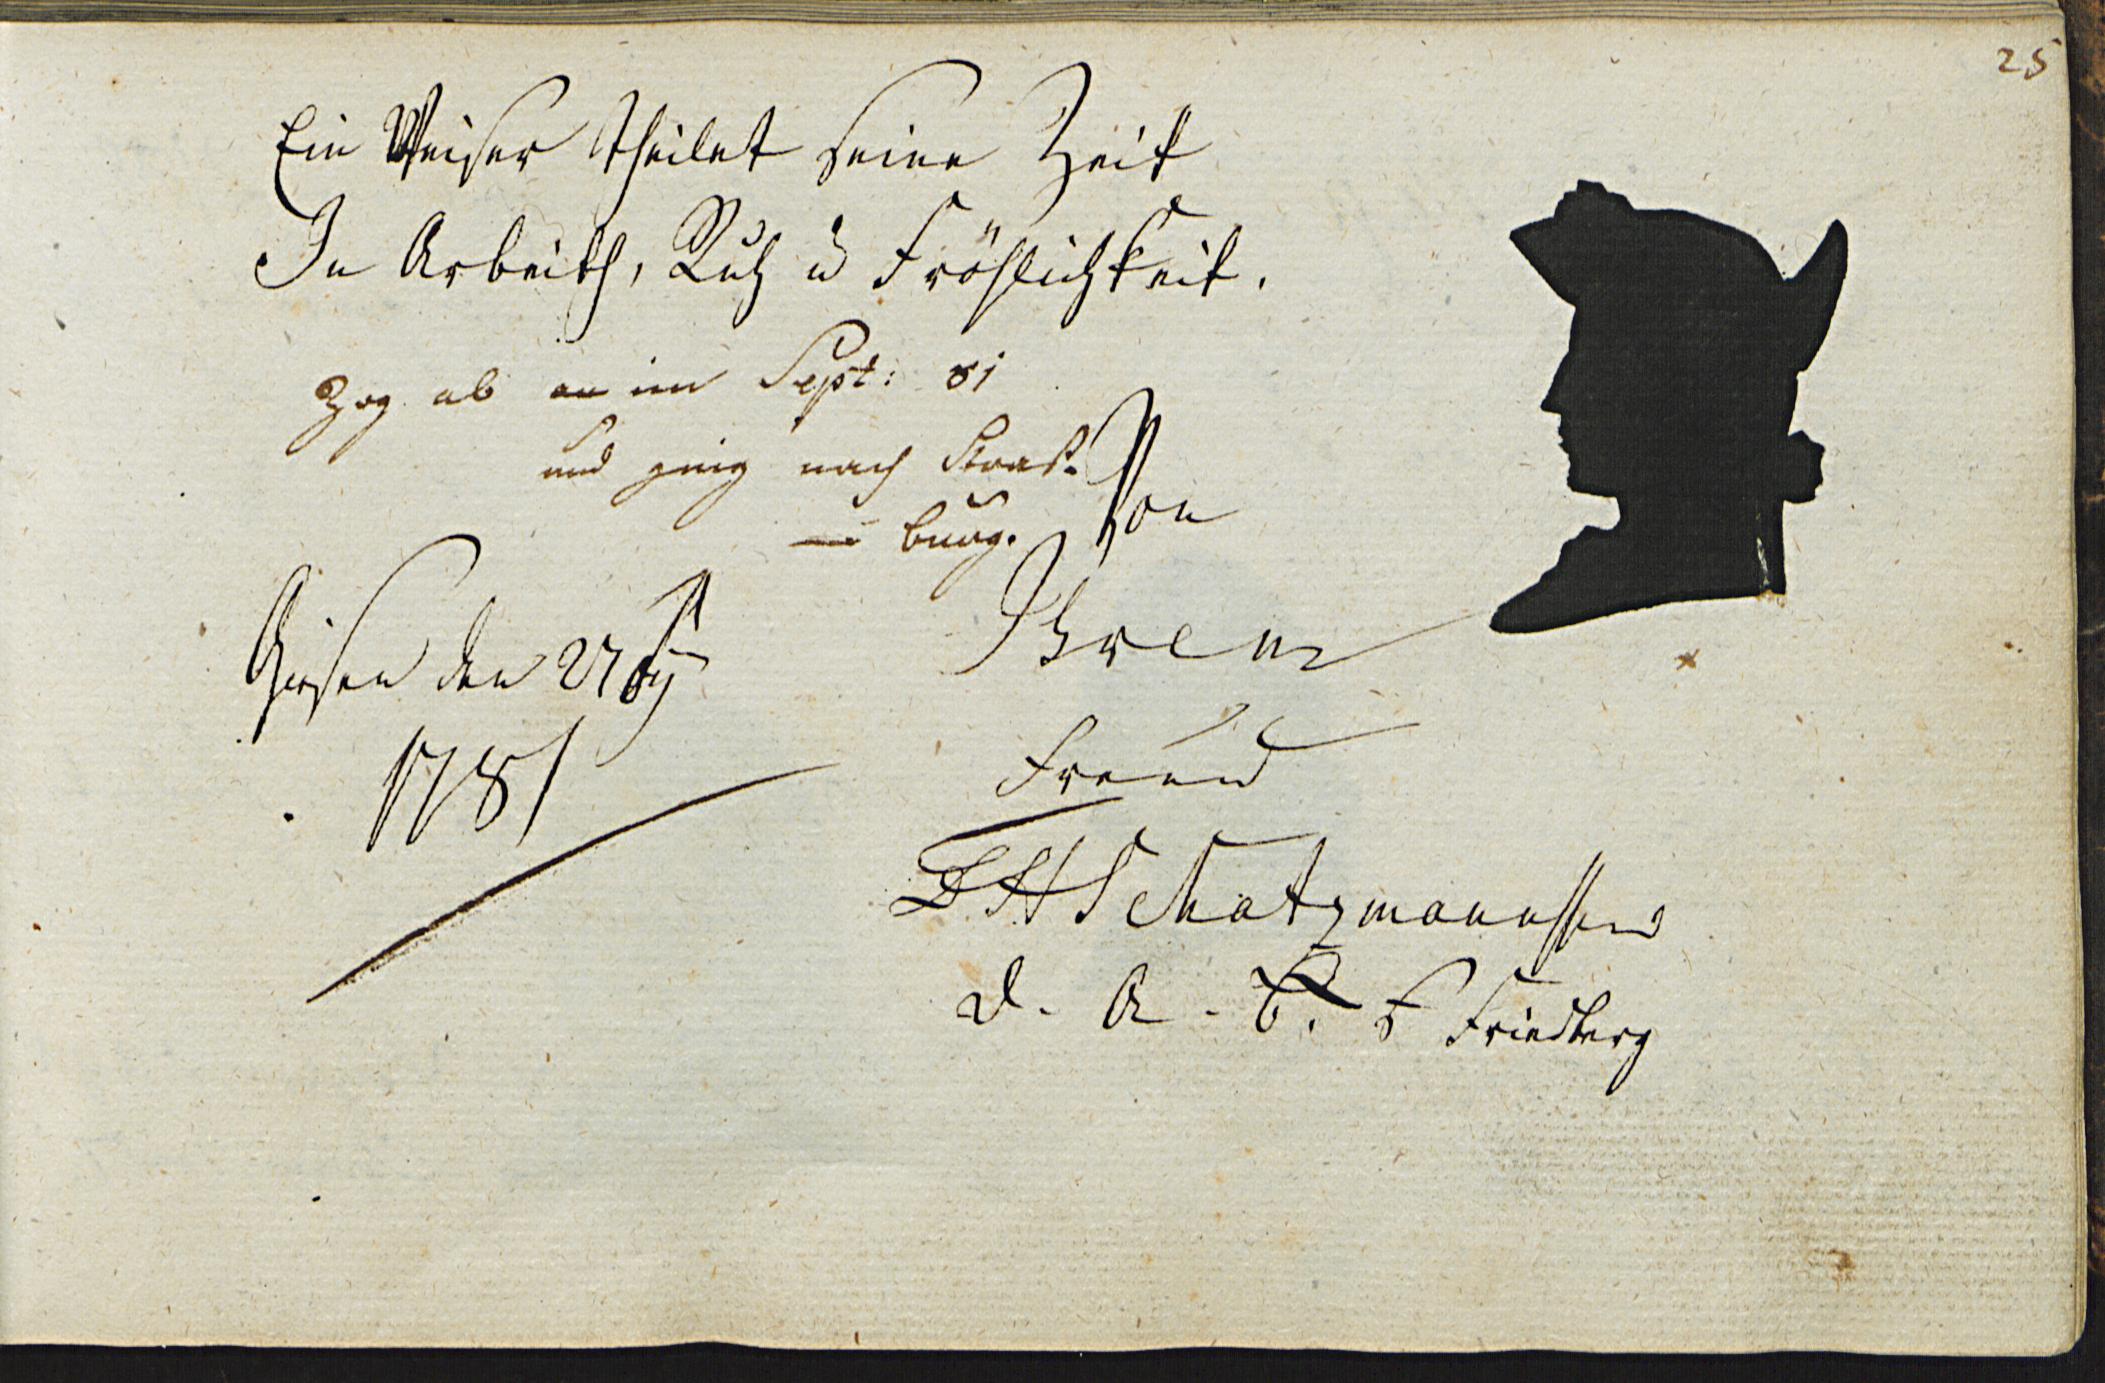 25
Ein Weiser theilet seine Zeit
In Arbeith, Ruh u Fröhlichkeit.
Zog ab im Sept: 81
und ging nach Straß-
burg.
Von
Giesen den 27
1781
Ihrem
Freund
Schatzmann
d. G. B. Friedberg